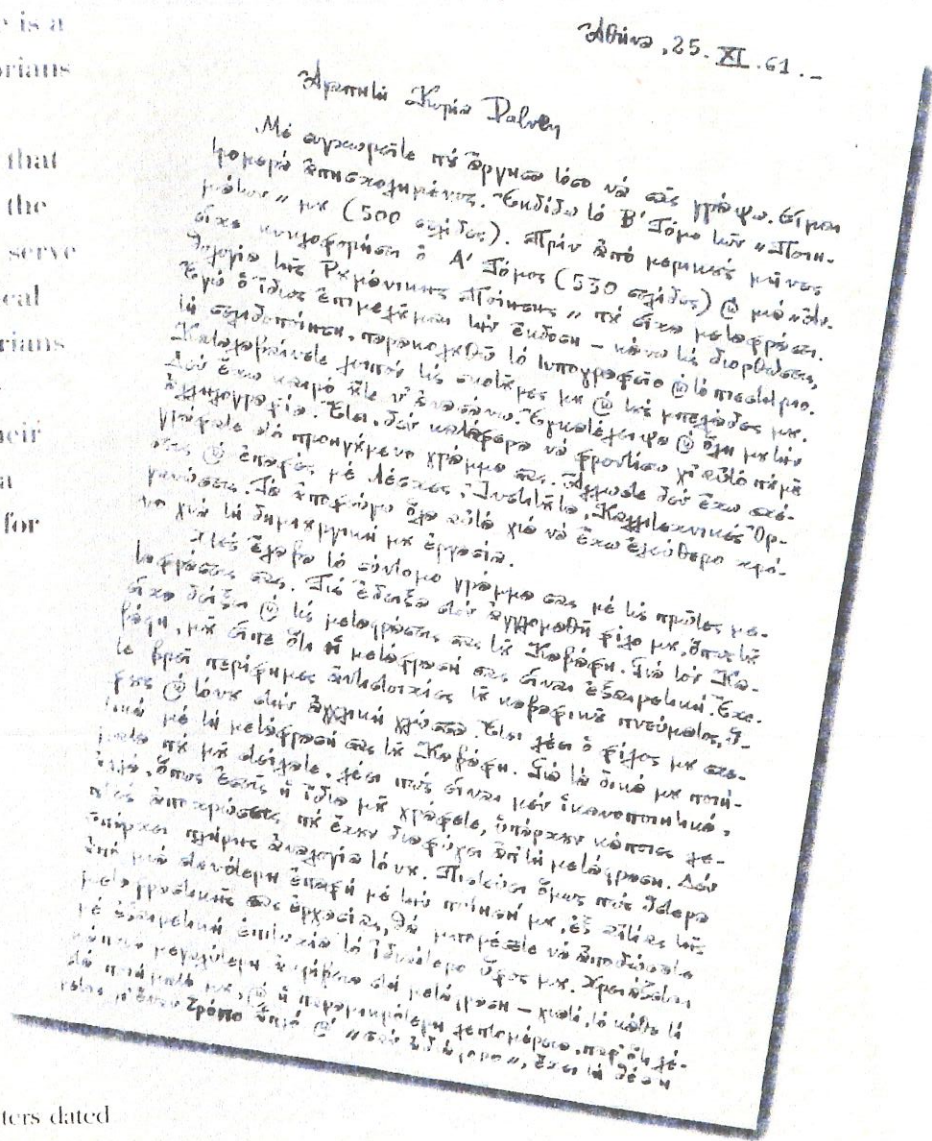 is a
orians
that
the
serve
cal
rians
eir
a
for
ters dated
Ἀθήνα, 25. XI. 61. –
Ἀγαπητὴ Κυρία Dalven
Μὲ συγχωρεῖτε ποὺ ἄργησα τόσο νὰ σᾶς γράψω. Εἶμαι
τρομερὰ ἀπησχολημένος. Ἐκδίδω τὸ Β' Τόμο τῶν „Ποιη-
μάτων" μου (500 σελίδες). Πρὶν ἀπὸ μερικοὺς μῆνες
εἶχε κυκλοφορήσει ὁ Α' Τόμος (530 σελίδες) καὶ μιὰ „Ἀν-
θολογία τῆς Ρουμάνικης Ποίησης" ποὺ εἶχα μεταφράσει.
Ἐγὼ ὁ ἴδιος ἐπιμελοῦμαι τὴν ἔκδοση – κάνω τὶς διορθώσεις,
τὴ σελιδοποίηση, παρακολουθῶ τὸ τυπογραφεῖο καὶ τὸ πιεστήριο.
Καταλαβαίνετε λοιπὸν τὶς σκοτοῦρες μου καὶ τοὺς μπελάδες μου.
Δὲν ἔχω καιρὸ οὔτε ν' ἀνασάνω. Ἐγκατέλειψα καὶ ὅλη μου τὴν
ἀλληλογραφία. Ἔτσι, δὲν κατάφερα νὰ φροντίσω γι' αὐτὸ ποὺ μοῦ
γράφατε στὸ προηγούμενο γράμμα σας. Ἄλλωστε δὲν ἔχω σχέ-
σεις καὶ ἐπαφὲς μὲ Λέσχες, Ἰνστιτοῦτα, Καλλιτεχνικὲς Ὀρ-
γανώσεις. Τὰ ἀποφεύγω ὅλα αὐτὰ γιὰ νὰ ἔχω ἐλεύθερο χρό-
νο γιὰ τὴ δημιουργική μου ἐργασία.
Χτὲς ἔλαβα τὸ σύντομο γράμμα σας μὲ τὶς πρῶτες με-
ταφράσεις σας. Τὶς ἔδειξα στὸν ἀγγλομαθῆ φίλο μου, ὅπως τοῦ
εἶχα δείξει καὶ τὶς μεταφράσεις σας τοῦ Καβάφη. Γιὰ τὸν Κα-
βάφη, μοῦ εἶπε ὅτι ἡ μετάφρασή σας εἶναι ἐξαιρετική. Ἔχε-
τε βρεῖ περίφημες ἀντιστοιχίες τοῦ καβαφικοῦ πνεύματος, ὕ-
φους καὶ τόνου στὴν ἀγγλικὴ γλῶσσα. Ἔτσι λέει ὁ φίλος μου σχε-
τικὰ μὲ τὴ μετάφρασή σας τοῦ Καβάφη. Γιὰ τὰ δικά μου ποιή-
ματα ποὺ μοῦ στείλατε, λέει πὼς εἶναι μὲν ἱκανοποιητικά,
ἀλλά, ὅπως ἐσεῖς ἡ ἴδια μοῦ γράφετε, ὑπάρχουν κάποιες λε-
πτὲς ἀποχρώσεις ποὺ ἔχουν διαφύγει ἀπ' τὴ μετάφραση. Δὲν
ὑπάρχει πλήρης ἀναλογία τόνου. Πιστεύει ὅμως πὼς ὕστερα
ἀπὸ μιὰ στενότερη ἐπαφὴ μὲ τὴν ποίησή μου, ἐξ αἰτίας τῆς
μεταφραστικῆς σας ἐργασίας, θὰ μπορέσετε νὰ ἀποδώσετε
μὲ ἐξαιρετικὴ ἐπιτυχία τὸ ἰδιαίτερο ὕφος μου. Χρειάζεται
κάποια μεγαλύτερη ἀκρίβεια στὴ μετάφραση – γιατί, τὸ κάθε τὶ
στὰ ποιήματά μου, καὶ ἡ παραμικρότερη λεπτομέρεια, παρ' ὅτι λέ-
γεται μ' ἕναν τρόπο ἁπλὸ καὶ ἔχει τὴ θέση